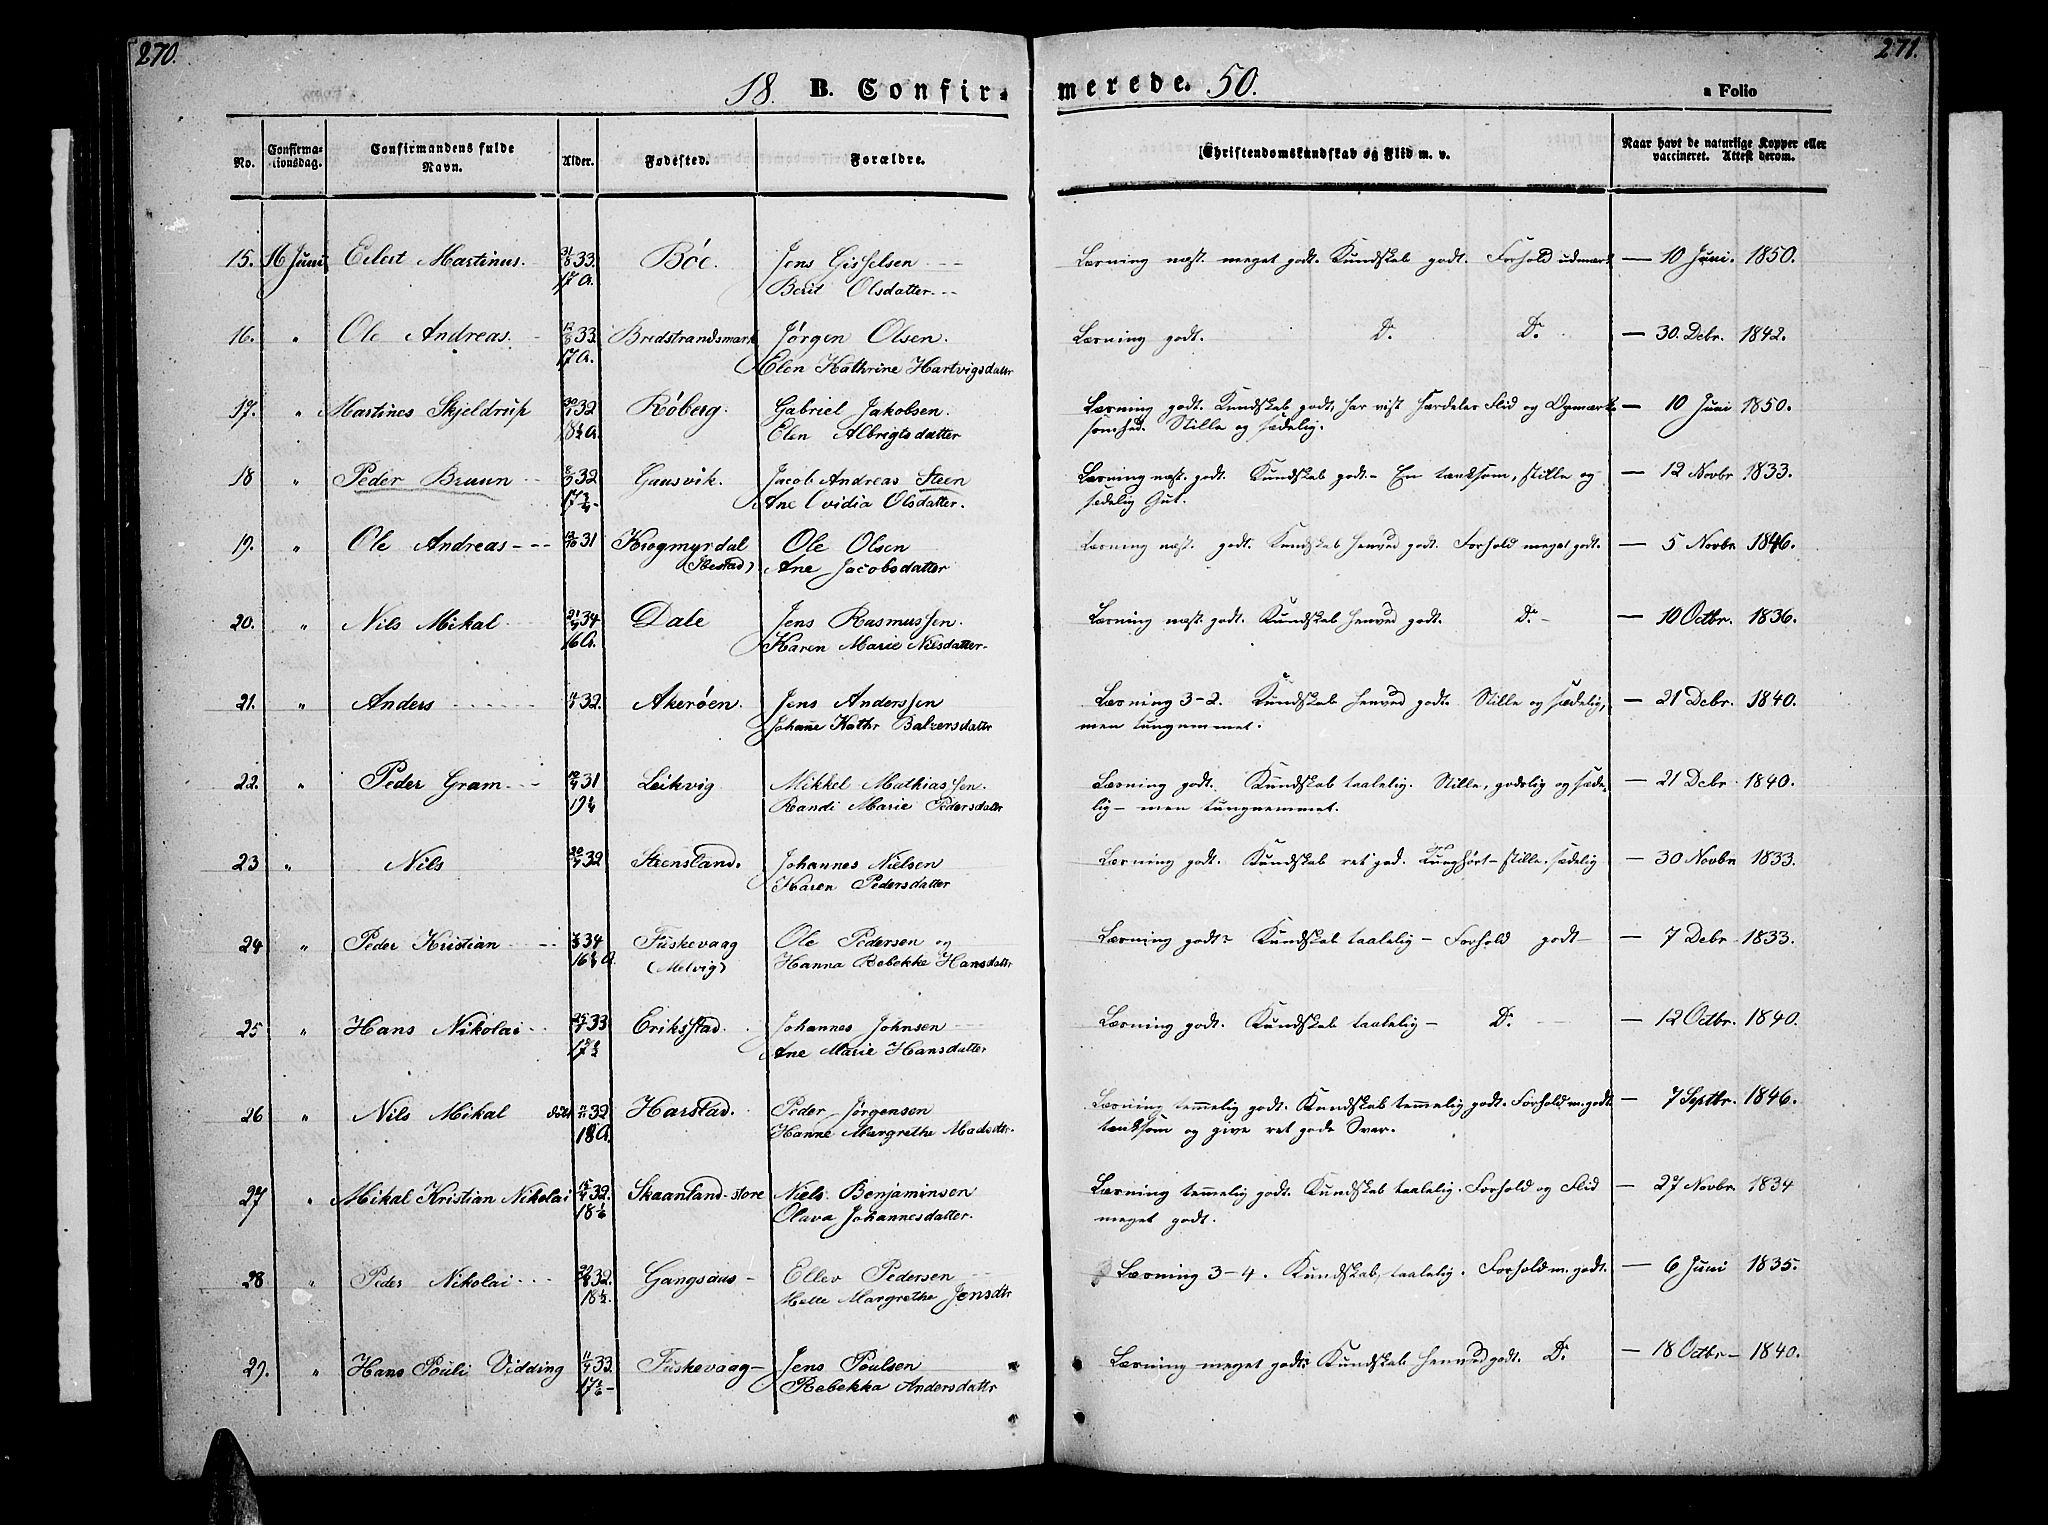 270.
271.
18 B. Confirmerede. 50.
a Folio
No. Confirmationsdag. Confirmandens fulde Navn. Alder. Fødested. Forældre. Christendomskundskab og Flid m. v. Naar havt de naturlige Kopper eller vaccineret. Attest derom.
15. 16 Juni Eilert Martinus. 33. Bøe. Jens Gisselsen Læsning næst. meget godt. Kundskab godt. Forhold udmærk — 10 Juni. 1850.
17 A. Berit Olsdatter.
16. " Ole Andreas. 33. Bredstrandsmark Jørgen Olsen. Læsning godt. Do. Do. — 30. Debr. 1842.
17 A. Elen Kathrine Hartvigsdattr
17. " Martines Skjeldrup 32 Røberg. Gabriel Jakobsen. Læsning godt. Kundskab godt, har vist særdeles Flid og Opmærk- — 10 Juni 1850.
18½ A. Elen Albrigtsdatter somhed. Stille og sædelig.
18 " Peder Bruun 32 Gausvik. Jacob Andreas Steen Læsning næst. godt. Kundskab godt. – En tænksom, stille og — 12 Novbr 1833.
17¾ Ane Ovidia Olsdatter. sædelig Gut.
19. " Ole Andreas 31 Krogmyrdal Ole Olsen Læsning næst. godt. Kundskab henved godt. Forhold meget godt. — 5 Novbr 1846.
(Ibestad) Ane Jacobsdatter
20. " Nils Mikal 34 Dale Jens Rasmussen. Læsning næst. godt. Kundskab henved godt. Do. — 10 Octbr. 1836.
16 A. Karen Marie Nilsdatter
21. " Anders 32. Akerøen. Jens Anderssen Læsning 3–2. Kundskab henved godt. Stille og sædelig, — 21 Debr. 1840.
Johañe Kathr Balzersdattr men tungnemmet.
22. " Peder Gram 31 Leikvig Mikkel Mathiassen. Læsning godt. Kundskab taalelig. Stille, godslig og sæde- — 21 Debr 1840.
19¼ Randi Marie Pedersdattr lig – men tungnemmet.
23 " Nils 32 Steensland. Johannes Nielsen Læsning godt. Kundskab ret god. Tunghørt – stille. sædelig — 30 Novbr 1833.
Karen Pedersdatter
24 " Peder Kristian 34 Fuskevaag Ole Pedersen og Læsning godt. Kundskab taalelig – Forhold godt — 7 Debr 1833.
16¼ A. (Melvig) Hanna Rebekke Hansdattr
25 " Hans Nikolai 33 Eriksstad. Johannes Johnsen Læsning godt. Kundskab taalelig – Do. — 12 Octbr. 1840.
Ane Marie Hansdatter
26 " Nils Mikal 32 Harstad. Peder Jørgensen Læsning temmelig godt. Kundskab temmelig godt. Forhold m. godt. — 7 Septbr. 1846.
18 A. Hanne Margrethe Madsdtr. tænksom og give ret gode Svar.
27 " Mikal Kristian Nikolai 32. Skaanland-store Niels Benjaminsen Læsning temmelig godt. Kundskab taalelig. Forhold og Flid — 27 Novbr. 1834
18 Olava Johannesdatter. meget godt.
28 " Peder Nikolai 32. Gangsaas Ellev Pedersen Læsning 3–4. Kundskab taalelig. Forhold m. godt. — 6 Juni 1835.
18½ Mette Margrethe Jensdtr
29. " Hans Pouli Vidding 33. Fuskevaag Jens Poulsen Læsning meget godt. Kundskab henved godt. Do. — 18 Octbr — 1840.
17 Rebekka Andersdattr